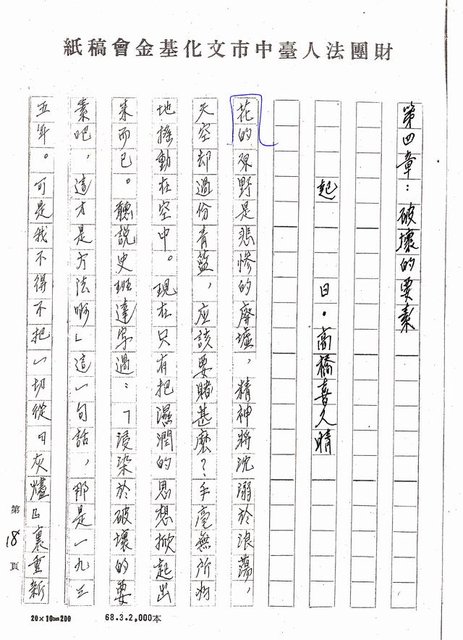 財團法人臺中市文化基金會稿紙
第四章：破壞的要素
起　日・高橋喜久晴
花的原野是悲慘的廢墟，精神將沈溺於浪蕩，
天空却過份青藍，應該要賭甚麼？手毫無所
地搖動在空中。現在只有把濕潤的思想掀起出
來而已。聽說史班達寫過：「浸染於破壞的要
素吧，這才是方法啊」這一句話，那是一九三
五年。可是我不得不把一切從『灰燼』裏重新
第18頁
20×10=200
68.3.2,000本